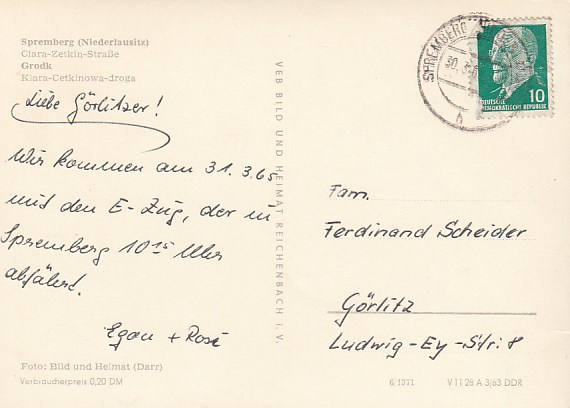 Spremberg (Niederlausitz)
Clara-Zetkin-Straße
Grodk
Klara-Cetkinowa-droga
Liebe Görlitzer!
Wir kommen am 31.3.65
mit den E-Zug, der in
Spremberg 10¹⁵ Uhr
abfährt.
Egon + Rosi
Foto: Bild und Heimat (Darr)
Verbraucherpreis 0,20 DM
VEB BILD UND HEIMAT REICHENBACH I. V.
SPREMBERG
10
DEUTSCHE
DEMOKRATISCHE REPUBLIK
Fam.
Ferdinand Scheider
Görlitz
Ludwig-Ey-Str. 8
6/1071 V 11 28 A 3/63 DDR